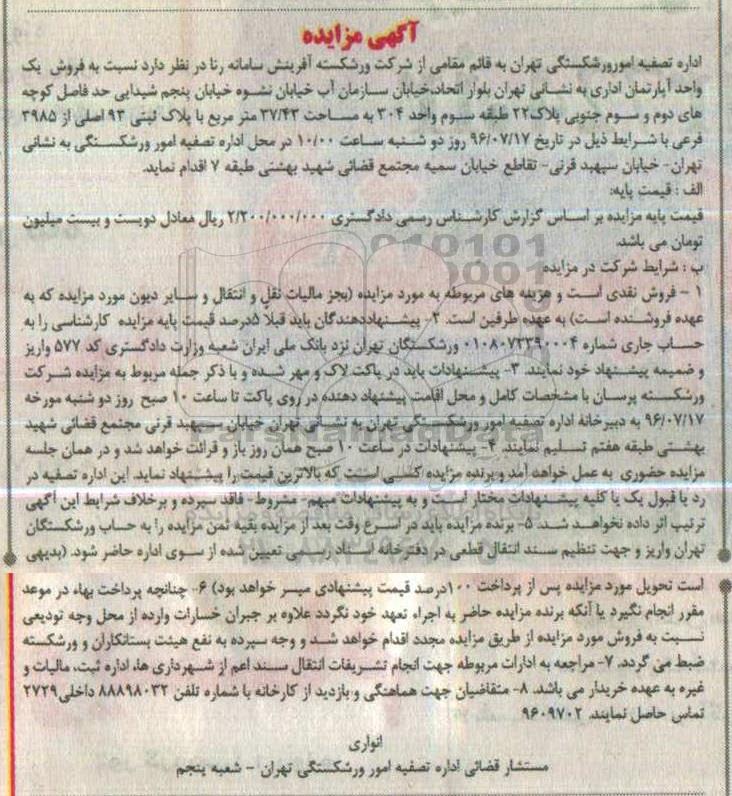 آگهی مزایده
اداره تصفیه امورورشکستگی تهران به قائم مقامی از شرکت ورشکسته آفرینش سامانه رنا در نظر دارد نسبت به فروش یک
واحد آپارتمان اداری به نشانی تهران بلوار اتحاد،خیابان سازمان آب خیابان نشوه خیابان پنجم شیدایی حد فاصل کوچه
های دوم و سوم جنوبی پلاک۲۲ طبقه سوم واحد ۳۰۴ به مساحت ۳۷/۴۳ متر مربع با پلاک ثبتی ۹۳ اصلی از ۳۹۸۵
فرعی با شرایط ذیل در تاریخ ۹۶/۰۷/۱۷ روز دو شنبه ساعت ۱۰/۰۰ در محل اداره تصفیه امور ورشکستگی به نشانی
تهران- خیابان سپهبد قرنی- تقاطع خیابان سمیه مجتمع قضائی شهید بهشتی طبقه ۷ اقدام نماید.
الف : قیمت پایه:
قیمت پایه مزایده بر اساس گزارش کارشناس رسمی دادگستری ۲/۲۰۰/۰۰۰/۰۰۰ ریال معادل دویست و بیست میلیون
تومان می باشد.
ب : شرایط شرکت در مزایده:
۱ – فروش نقدی است و هزینه های مربوطه به مورد مزایده (بجز مالیات نقل و انتقال و سایر دیون مورد مزایده که به
عهده فروشنده است) به عهده طرفین است. ۲- پیشنهاددهندگان باید قبلا ۵درصد قیمت پایه مزایده کارشناسی را به
حساب جاری شماره ۰۱۰۸۰۷۳۳۹۰۰۰۴ ورشکستگان تهران نزد بانک ملی ایران شعبه وزارت دادگستری کد ۵۷۷ واریز
و ضمیمه پیشنهاد خود نمایند. ۳- پیشنهادات باید در پاکت لاک و مهر شده و با ذکر جمله مربوط به مزایده شرکت
ورشکسته پرسان با مشخصات کامل و محل اقامت پیشنهاد دهنده در روی پاکت تا ساعت ۱۰ صبح روز دو شنبه مورخه
۹۶/۰۷/۱۷ به دبیرخانه اداره تصفیه امور ورشکستگی تهران به نشانی تهران خیابان سپهبد قرنی مجتمع قضائی شهید
بهشتی طبقه هفتم تسلیم نمایند. ۴- پیشنهادات در ساعت ۱۰ صبح همان روز باز و قرائت خواهد شد و در همان جلسه
مزایده حضوری به عمل خواهد آمد و برنده مزایده کسی است که بالاترین قیمت را پیشنهاد نماید. این اداره تصفیه در
رد یا قبول یک یا کلیه پیشنهادات مختار است و به پیشنهادات مبهم- مشروط- فاقد سپرده و برخلاف شرایط این آگهی
ترتیب اثر داده نخواهد شد. ۵- برنده مزایده باید در اسرع وقت بعد از مزایده بقیه ثمن مزایده را به حساب ورشکستگان
تهران واریز و جهت تنظیم سند انتقال قطعی در دفترخانه اسناد رسمی تعیین شده از سوی اداره حاضر شود. (بدیهی
است تحویل مورد مزایده پس از پرداخت ۱۰۰درصد قیمت پیشنهادی میسر خواهد بود) ۶- چنانچه پرداخت بهاء در موعد
مقرر انجام نگیرد یا آنکه برنده مزایده حاضر به اجراء تعهد خود نگردد علاوه بر جبران خسارات وارده از محل وجه تودیعی
نسبت به فروش مورد مزایده از طریق مزایده مجدد اقدام خواهد شد و وجه سپرده به نفع هیئت بستانکاران و ورشکسته
ضبط می گردد. ۷- مراجعه به ادارات مربوطه جهت انجام تشریفات انتقال سند اعم از شهرداری ها، اداره ثبت، مالیات و
غیره به عهده خریدار می باشد. ۸- متقاضیان جهت هماهنگی و بازدید از کارخانه با شماره تلفن ۸۸۸۹۸۰۳۲ داخلی۲۷۲۹
تماس حاصل نمایند. ۹۶۰۹۷۰۲
انواری
مستشار قضائی اداره تصفیه امور ورشکستگی تهران - شعبه پنجم